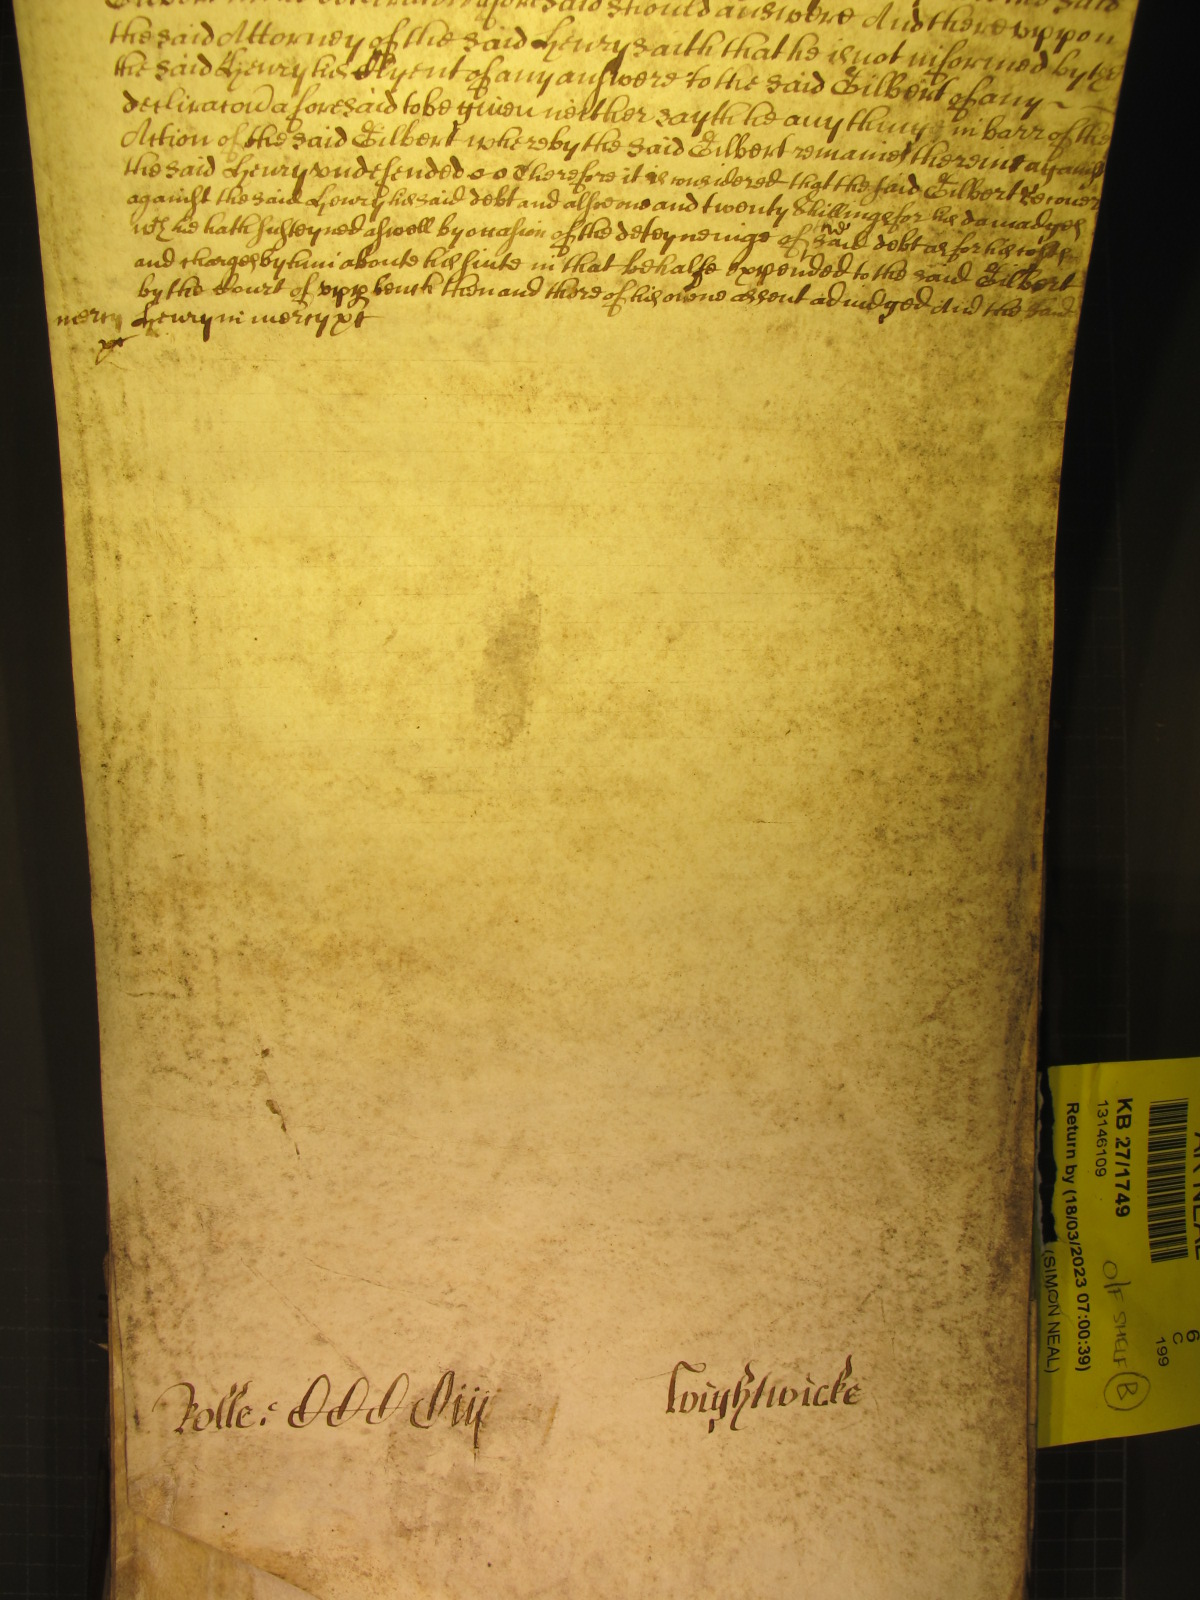 the said Attorney of the said Henry saith that he is not informed by the
the said Henry his Clyent of any answere to the said Gilbert of any
declaratoin aforesaid to be given neither sayth he any thing in barr of the
Action of the said Gilbert whereby the said Gilbert remaines therein against
the said Henry undefended Therefore it is considered that the said Gilbert Recover
against the said Henry his said debt and alsoe one and twenty shillings for his damadges
wch he hath susteyned aswell by occasion of the deteyneinge of said debt as for his costs
and charges by him aboute his suite in that behalfe expended to the said Gilbert
by the Court of upper bench then and there of his owne assent adiudged And the said
mercy Henry in mercy &c
Rolle: CCC Ciij
Wightwicke
KB 27/1749
13146109
Return by (18/03/2023 07:00:39)
(SIMON NEAL)
O/F SHELF B
6
C
199